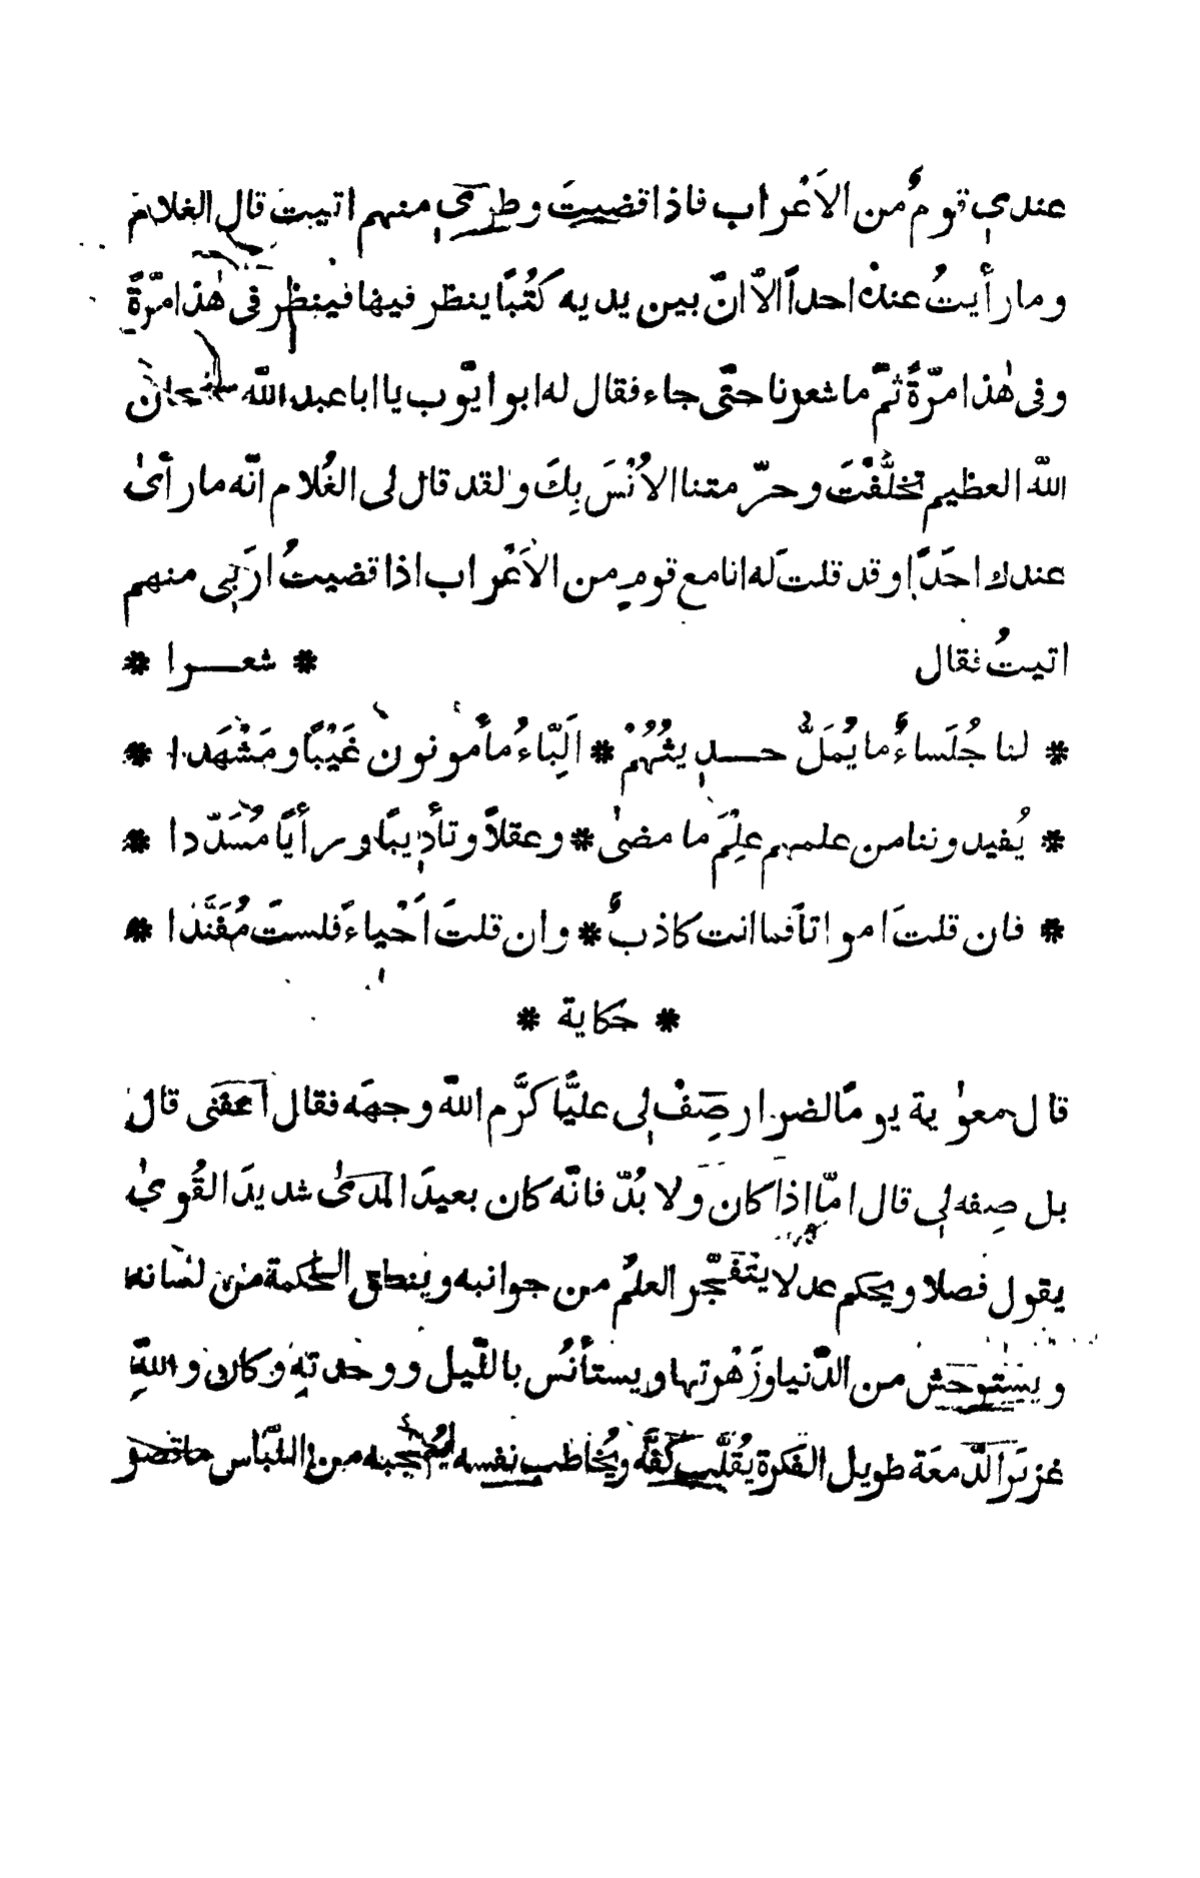 عندي قومٌ من الاَعْراب فاذا قضيتَ وطري منهم اتيت قال الغلام
وما رأيتُ عندهْ احداً الاّ انّ بين يديه كَتُبًا ينظر فيها فينظر فى هٰذا مرّةً
وفى هٰذا مرّةً ثمّ ما شعرنا حتّى جاء فقال له ابو ايّوب يا ابا عبد اللّه سبحان
اللّه العظيم تخلَّفْتَ وحرّمتنا الاُنْسَ بِكَ ولقد قال لى الغُلام انّه ما رأىٰ
عندك احَدًا وقد قلتَ له انا مع قومٍ من الاَعْراب اذا قضيتُ ارَبى منهم
اتيتُ فقال * شعــرا *
* لنا جُلَساءٌ ما يُمَلُّ حــديثُهُمْ * اَلِبّاءُ مأمونون غَيْبًا ومَشْهَدا *
* يُفيدوننا من علمهم علِْمَ ما مضىٰ * وعقلاً وتأديبًا ورأيًا مُسَدّدا *
* فان قلتَ امواتاً فما انت كاذبٌ * وان قلتَ اَحْياءً فلستَ مُفَنَّدا *
* حكاية *
قال معٰوية يومًا لضرار صِفْ لى عليًّا كرَّم اللّه وجهَه فقال اعفنى قال
بل صِفه لى قال امّا اذا كان ولا بُدّ فانّه كان بعيدَ المدىٰ شديدَ القُوىٰ
يقول فصلا ويحكم عدلا يتفجّر العلمُ من جوانبه وينطق الحكمة من لسانه
ويستوحش من الدّنيا وزَهْرتها ويستأنسُ باللّيل ووحدته وكان واللّهِ
غزيرَ الدّمعَة طويل الفكرة يُقلّب كفّه ويُخاطب نفسه يُعجبه من اللّباس ما قصر